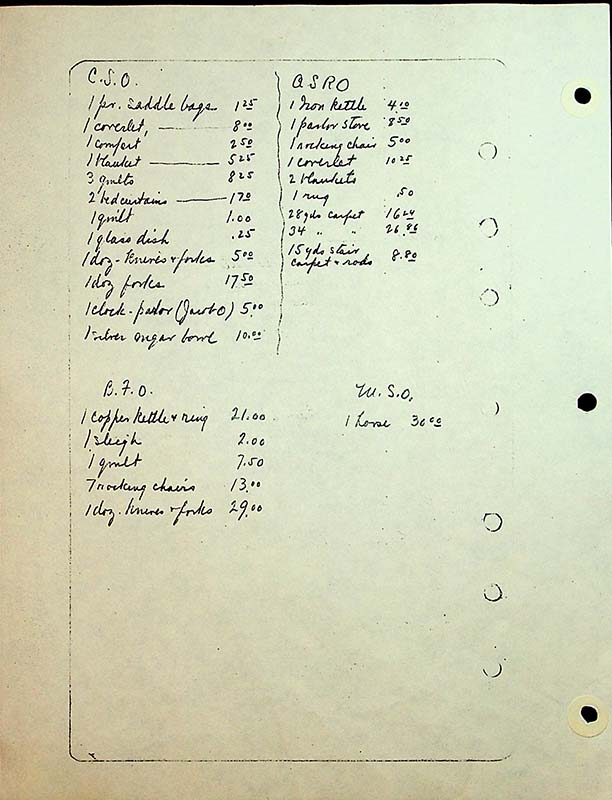 C.S.O.
1 pr. saddle bags 1 25
1 coverlet, 8 00
1 comfort 2 50
1 blanket 5 25
3 quilts 8 25
2 bedcurtains
1 quilt 1.00
1 glass dish .25
1 doz - knives + forks 5 00
1 doz forks 17 50
1 clock - parlor (Jacob O) 5.00
1 silver sugar bowl 10.00
A S R O
1 Iron kettle 4.00
1 parlor stove 8 50
1 rocking chair 5 00
1 coverlet 10 25
2 blankets
1 rug .50
28 yds carpet 16
34 " " 26.86
15 yds stair
carpet + rods 8.80
B. F. O.
1 Copper kettle + ring 21.00
1 sleigh 2.00
1 quilt 7.50
7 rocking chairs 13.00
1 doz. knives + forks 29.00
M. S. O.
1 horse 30 00